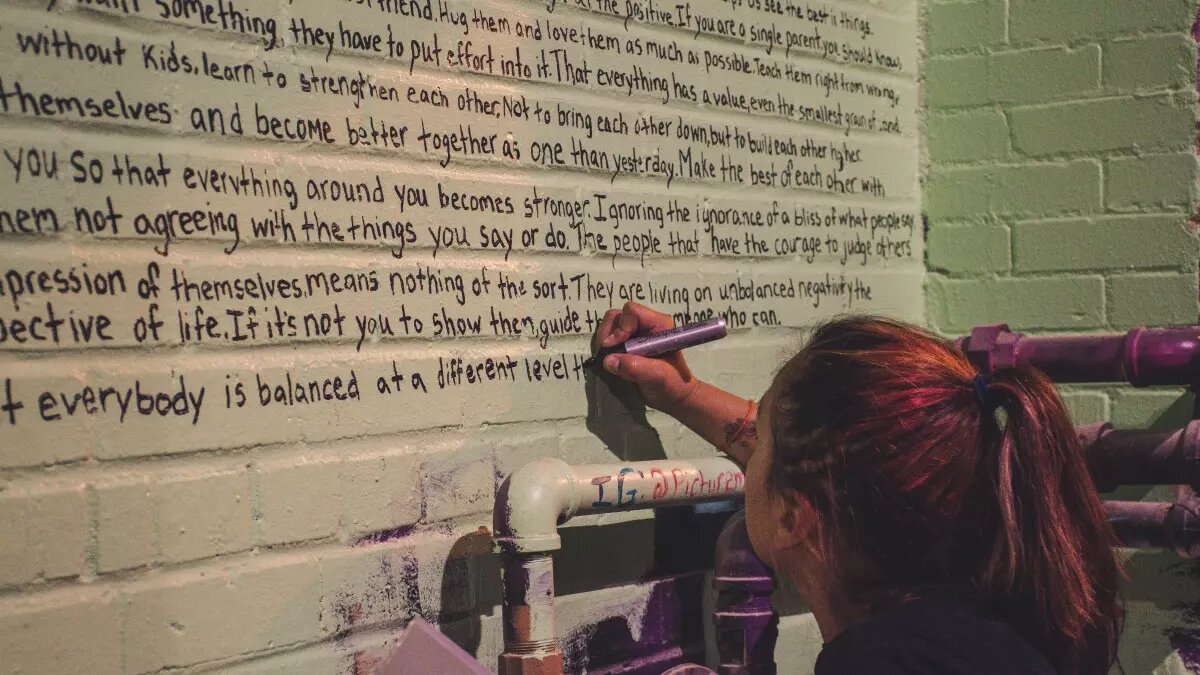 us see the best in things.
friend. Hug them and love them as much as possible. Teach them right from wrong,
the positive. If you are a single parent, you should know,
something, they have to put effort into it. That everything has a value, even the smallest grain of sand.
without Kids, learn to strengthen each other, Not to bring each other down, but to build each other higher.
themselves and become better together as one than yesterday. Make the best of each other with
you so that everything around you becomes stronger. Ignoring the ignorance of a bliss of what people say
not agreeing with the things you say or do. The people that have the courage to judge others
of themselves, means nothing of the sort. They are living on unbalanced negativity the
of life. If it's not you to show them, guide who can.
everybody is balanced at a different level
IG: @Picturem